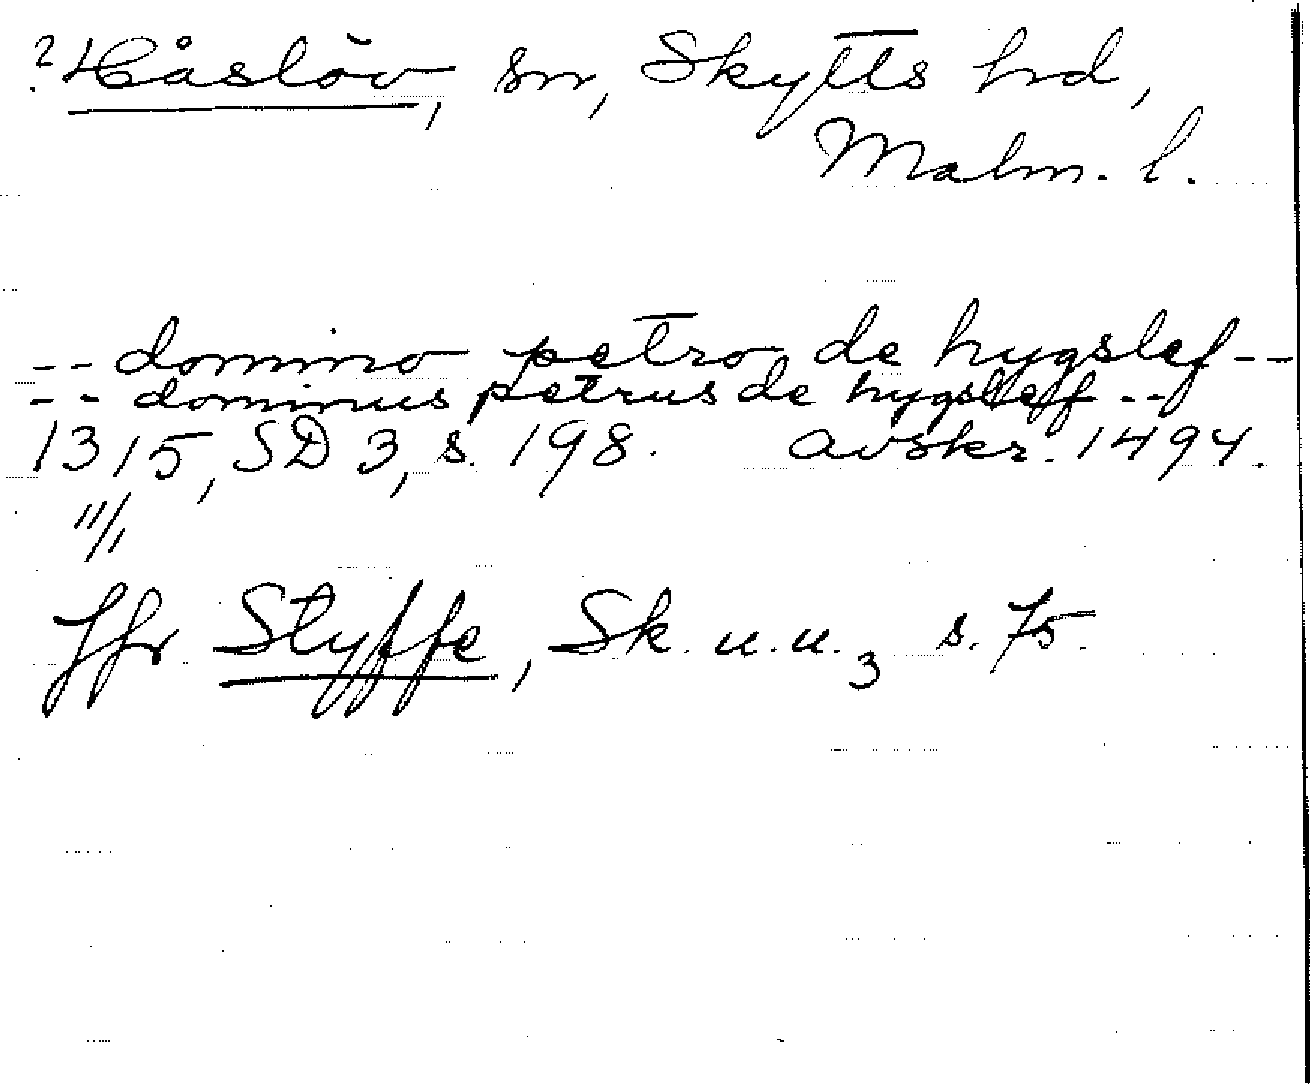 ? Håslöv, sn, Skytts hd,
Malm. l.
-- domino petro de hygslef --
-- dominus petrus de hygsleff --
1315, SD 3, s. 198. avskr. 1494.
11/1
Jfr Styffe, Sk. u. u. 3 s. 75.